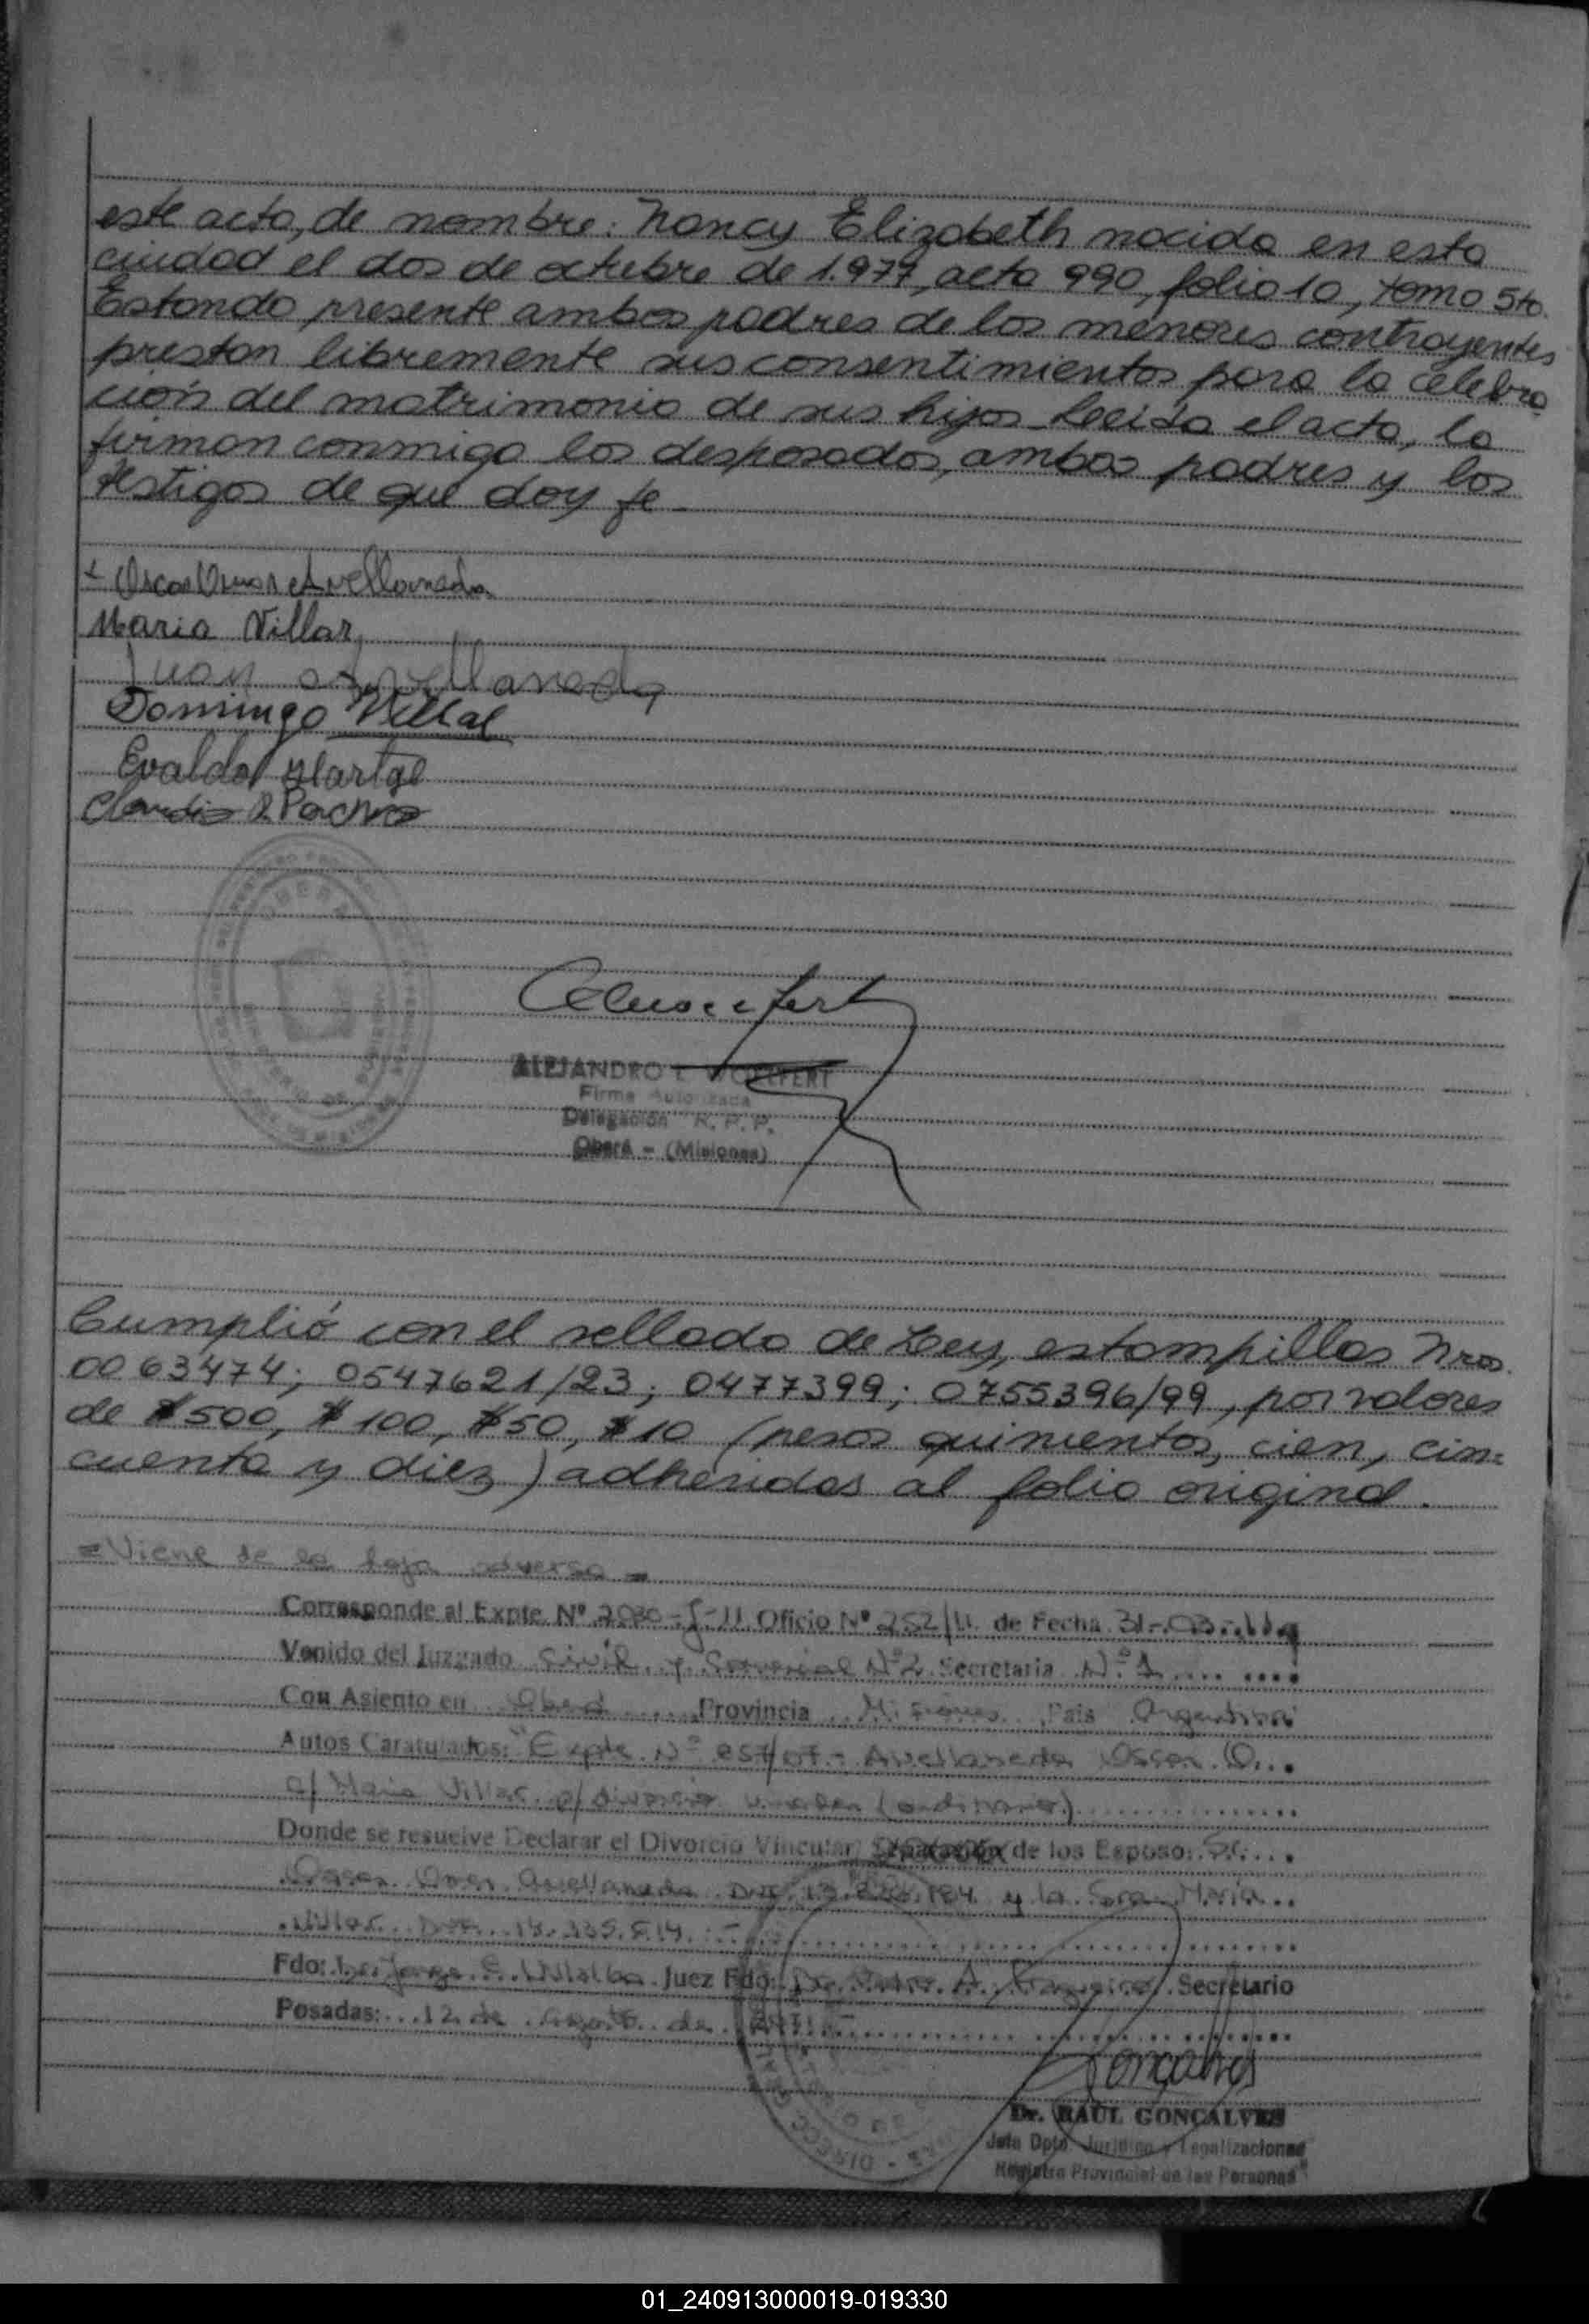 este acto, de nombre: Nancy Elizabeth nacida en esta
ciudad el dos de octubre de 1.977, acta 990, folio 10, tomo 5to.
Estando presente ambos padres de los menores contrayentes
prestan libremente sus consentimientos para la celebra
ción del matrimonio de sus hijos - Leeida el acta, la
firman conmigo los desposados, ambos padres y los
testigos de que doy fe -
Oscar Omar Avellaneda
Maria Villar
Juan Avellaneda
Domingo Villal
Evaldo Hartge
Claudio R. Pacho
ALEJANDRO E. WOELFERT
Firma Autorizada
Delegación R. P. P.
Oberá - (Misiones)
Cumplió con el sellado de Ley, estampillas Nros.
0063474; 0547621/23; 0477399; 0755396/99, por valores
de $500, $100, $50, $10 (pesos quinientos, cien, cin-
cuenta y diez) adheridas al folio original.
= Viene de la hoja adversa =
Corresponde al Expte. Nº 2030-J-11 Oficio Nº 252/11 de Fecha 31-03-11
Venido del Juzgado Civil y Comercial Nº 2 Secretaria Nº 1
Con Asiento en Oberá Provincia Misiones Pais Argentina
Autos Caratulados: "Expte. Nº 257/07 - Avellaneda Oscar O.
c/ Maria Villar s/ divorcio vincular (ordinario)
Donde se resuelve Declarar el Divorcio Vincular de los Esposo: Sr.
Oscar Omar Avellaneda DNI. 13. y la Sra. Maria
Villar DNI.
Fdo: Dr. Jorge E. Villalba Juez Fdo: Dr. Pedro A. Secretario
Posadas: 12 de Agosto de
Dr. RAUL GONCALVES
Jefe Dpto. Jurídico y Legalizaciones
Registro Provincial de las Personas
01_240913000019-019330